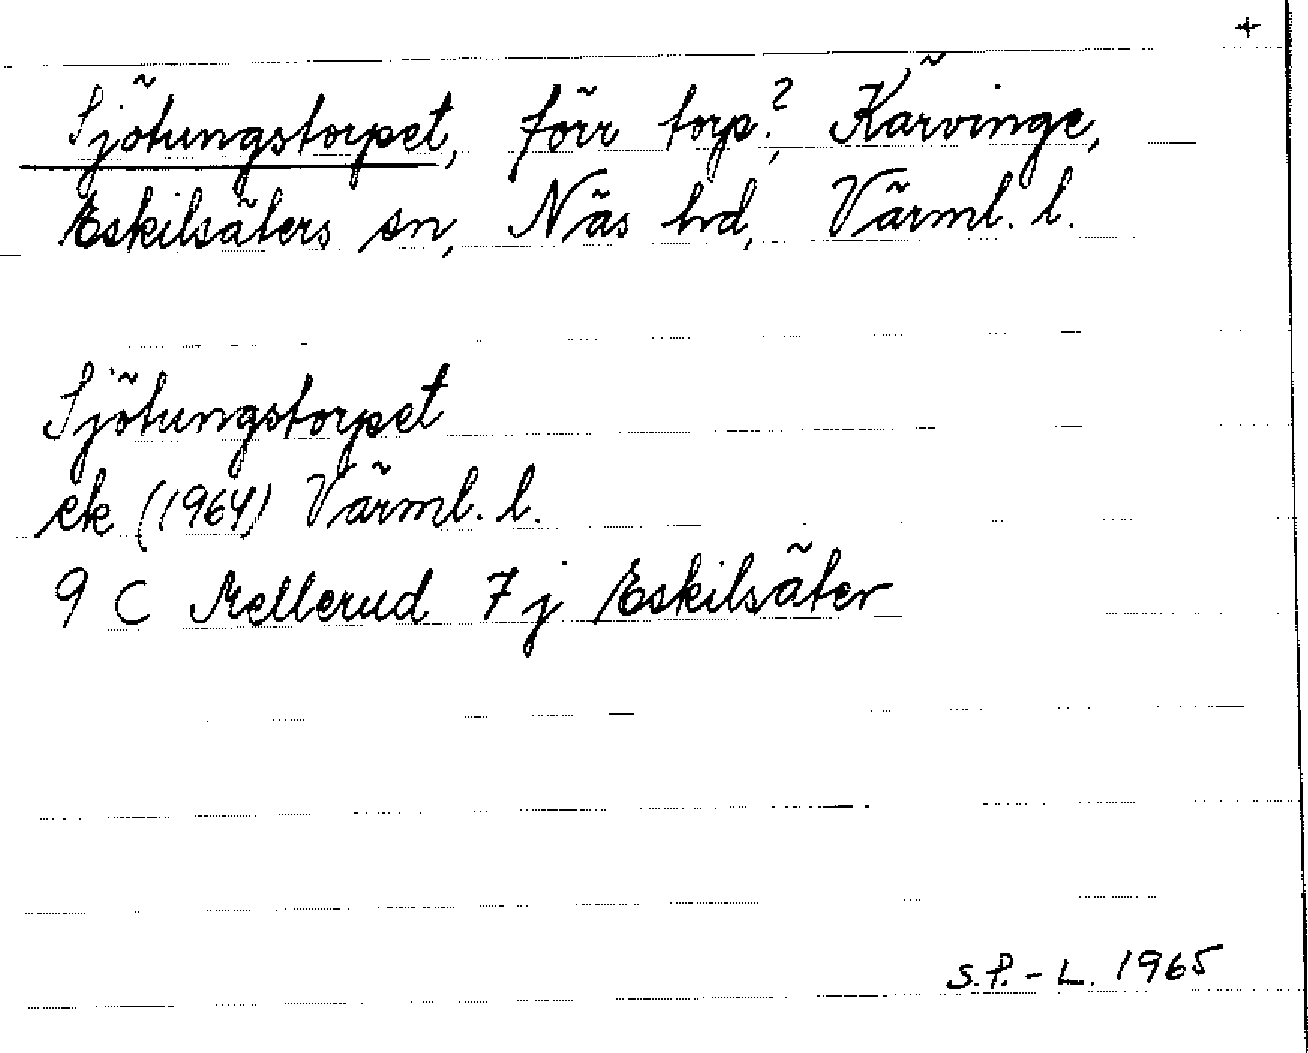 +
Sjötungstorpet, förr torp?, Kärvinge,
Eskilsäters sn, Näs hd, Värml. l.
Sjötungstorpet
ek (1964) Värml. l.
9 C Mellerud 7 j Eskilsäter
S.P.-L. 1965